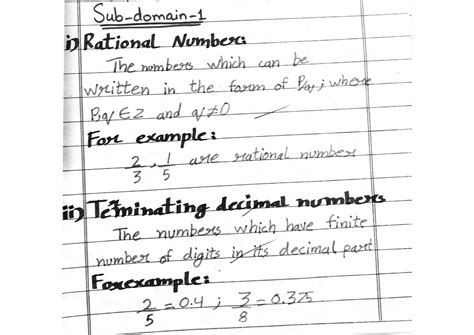 Sub-domain-1
i) Rational Number:
The numbers which can be
written in the form of P/q ; where
P,q ∈ Z and q ≠ 0
For example:
2/3 , 1/5 are rational numbers
ii) Terminating decimal numbers
The numbers which have finite
number of digits in its decimal part
For example:
2/5 = 0.4 ; 3/8 = 0.375